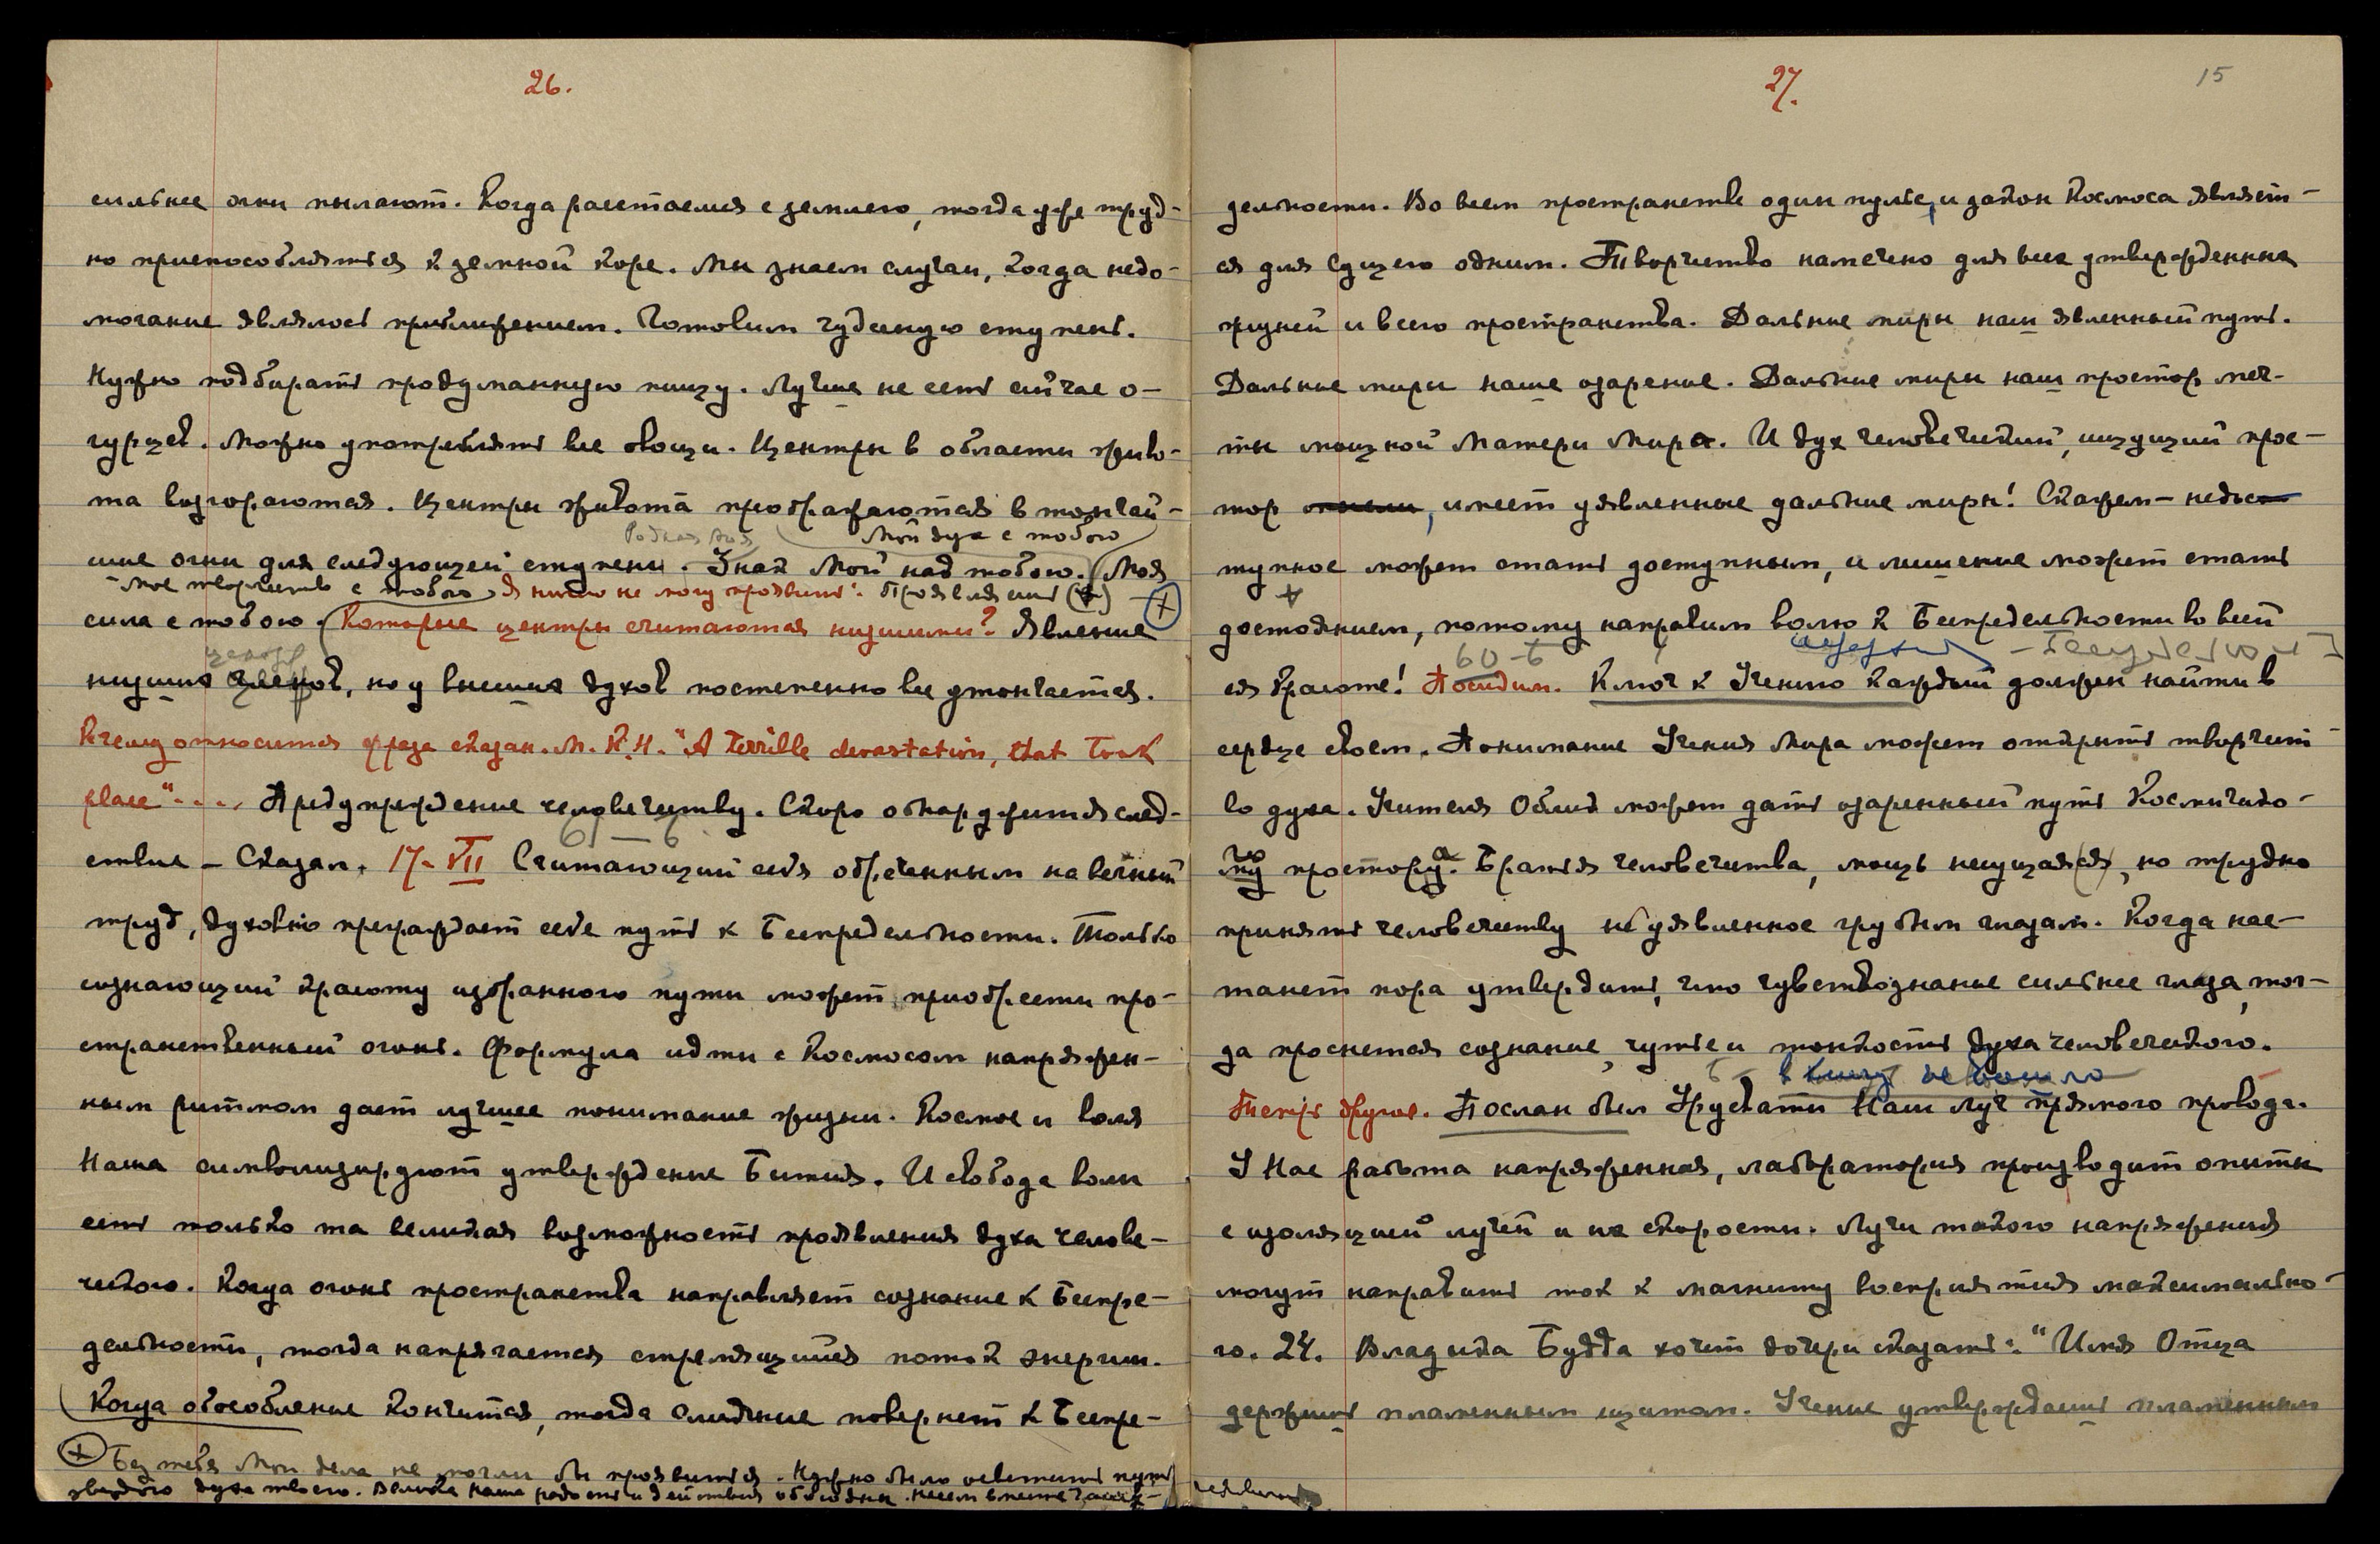 26.
сильнее огни пылают. Когда расстаемся с землею, тогда уже труд-
но приспособляться к земной коре. Мы знаем случаи, когда недо-
могание являлось приближением. Готовим чудесную ступень.
Нужно подбирать продуманную пищу. Лучше не есть сейчас о-
гурцев. Можно употреблять все овощи. Центры в области живо-
та возгораются. Центры живота преображаются в тончай-
Родная Моя Мой дух с тобою
шие огни для следующей ступени. Знак Мой над тобою. (Моя
- Мое творчество с тобою Я ничто не могу проявить. Проявляешь (+)
сила с тобою. Которые центры считаются низшими? Явление
центр
низших центров, но у высших духов постепенно все утончается.
К чему относится фраза сказан. М. К.Н. "A terrible devastation, that took
place".... Предупреждение человечеству. Скоро обнаружится след-
61 – б
ствие – Сказал. 17-VII Считающий себя обреченным на вечный
труд, духовно преграждает себе путь к Беспредельности. Только
сознающий красоту избранного пути может приобрести про-
странственный огонь. Формула идти с Космосом напряжен-
ным ритмом дает лучшее понимание жизни. Космос и воля
Наша символизируют утверждение Бытия. И свобода воли
есть только та великая возможность проявления духа челове-
ческого. Когда огонь пространства направляет сознание к Беспре-
дельности, тогда напрягается стремящийся поток энергии.
(Когда обособление кончится, тогда слияние повернет к Беспре-
(+) Без тебя Мои дела не могли бы проявиться. Нужно было осветить путь
звездою духа твоего. Велика наша радость и действия обоюдны. несем вместе
27.
15
дельности. Во всем пространстве один пульс, и закон Космоса являет-
ся для Сущего одним. Творчество намечено для всех утвержденных
жизней и всего пространства. Дальние миры наш явленный путь.
Дальние миры наше озарение. Дальние миры наш простор меч-
ты мощной Матери Мира. И дух человеческий, ищущий прос-
тор мысли, имеет уявленные дальние миры! Скажем – недос-
тупное может стать доступным, и лишение может стать
+
достоянием, потому направим волю к Беспредельности во всей
60-б
ея красоте! Посидим. Ключ к Учению каждый должен найти в
сердце своем. Понимание Учения Мира может открыть творчест-
во духа. Учителя Облик может дать озаренный путь Космическо-
го
му простору. а Братья человечества, мощь несущая(ся), но трудно
принять человечеству не уявленное грубым глазам. Когда нас-
танет пора утвердить, что чувствознание сильнее глаза, тог-
да проснется сознание, чутье и тонкость духа человеческого.
в книгу не вошло
Теперь другое. Послан был Урусвати Наш луч прямого провода.
У Нас работа напряженная, лаборатория производит опыты
с изоляцией лучей и на скорости. Лучи такого напряжения
могут направить ток к магниту восприятия максимально-
го. 24. Владыка Будда хочет дочери сказать: "Имя Отца
держишь пламенным щитом. Учение утверждаешь пламенным